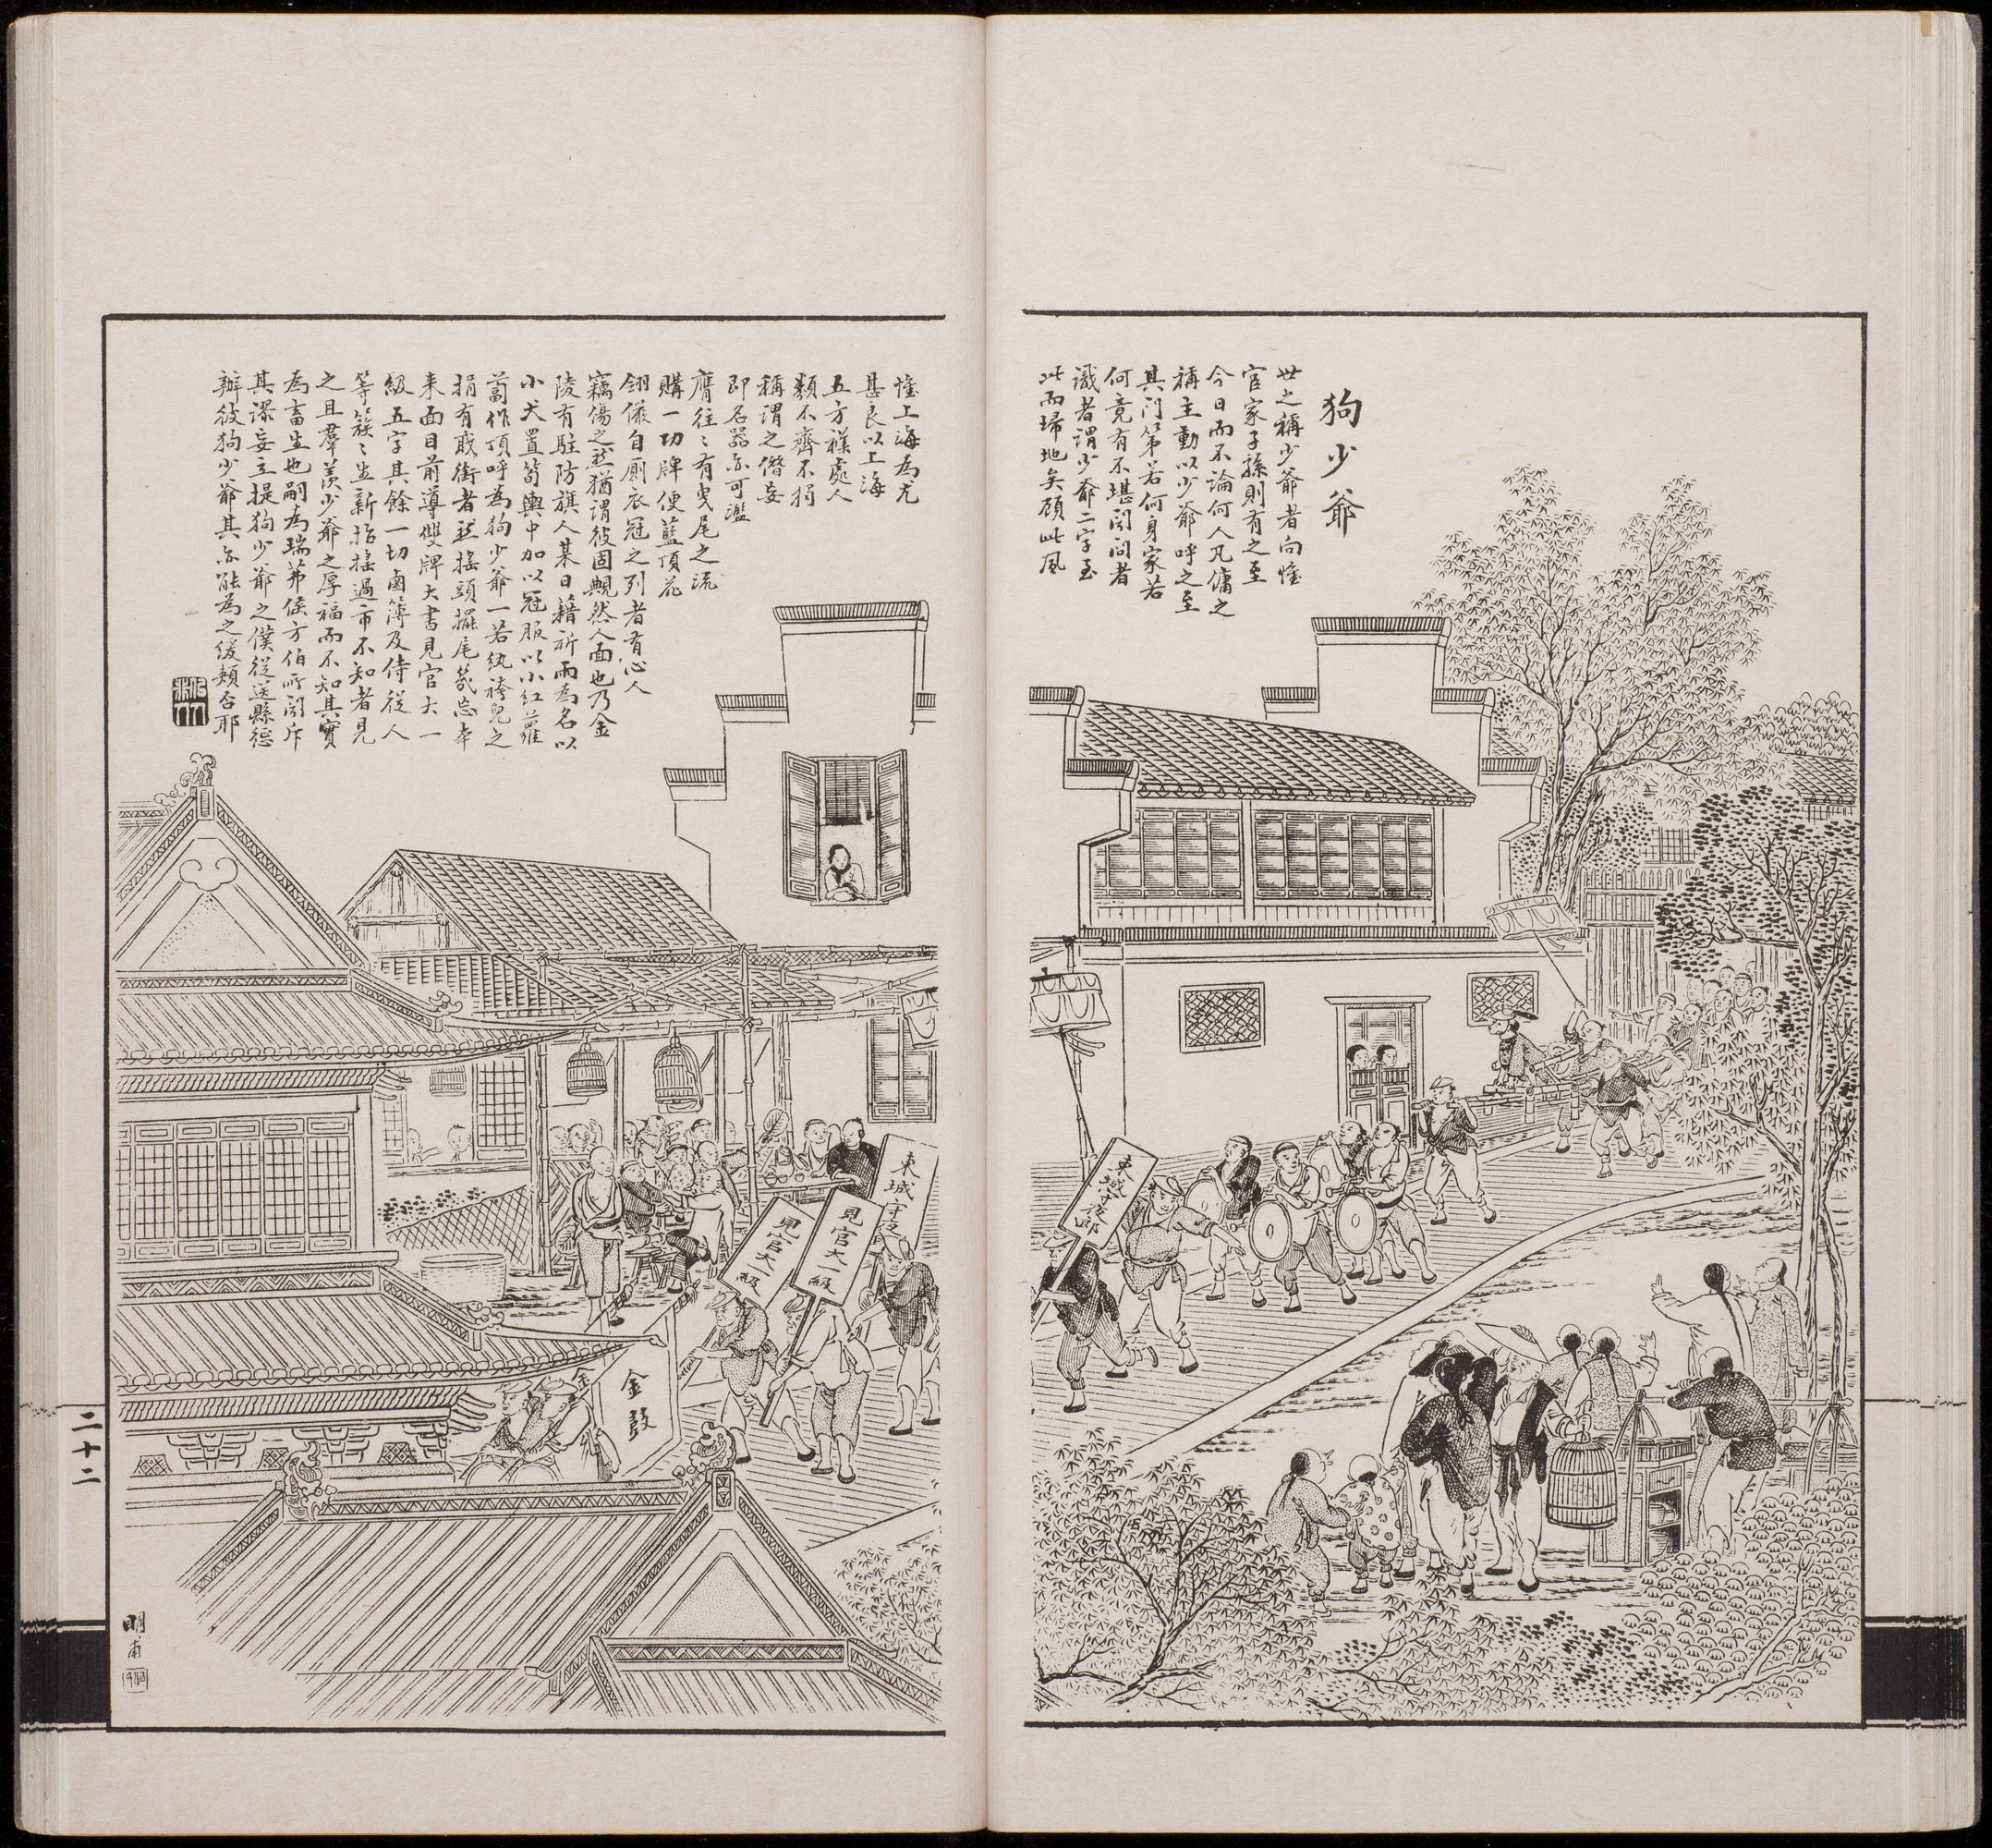 狗少爺
世之稱少爺者向惟
官家子孫則有之至
今日而不論何人凡傭之
稱主動以少爺呼之至
其門第若何身家若
何竟有不堪聞問者
識者謂少爺二字至
此而掃地矣顧此風
惟上海為尤
甚良以上海
五方襍處人
類不齊不捐
稱謂之僭妄
即名器亦可濫
膺往〻有曳尾之流
購一功牌便藍頂花
翎儼自廁衣冠之列者有心人
竊傷之然猶謂彼固靦然人面也乃金
陵有駐防旗人某日藉祈雨為名以
小犬置筍輿中加以冠服以小紅蘿
蔔作頂呼為狗少爺一若紈袴兒之
捐有職銜者然搖頭擺尾幾忘本
來面目前導雙牌大書見官大一
級五字其餘一切鹵簿及侍從人
等簇〻生新招搖過市不知者見
之且羣羨少爺之厚福而不知其實
為畜生也嗣為瑞茀侯方伯所聞斥
其謬妄立提狗少爺之僕從送縣懲
辦彼狗少爺其亦能為之緩頰否耶
東城守夜郎
東城守夜
見官大一級
見官大一級
金鼓
金
二十二
明甫